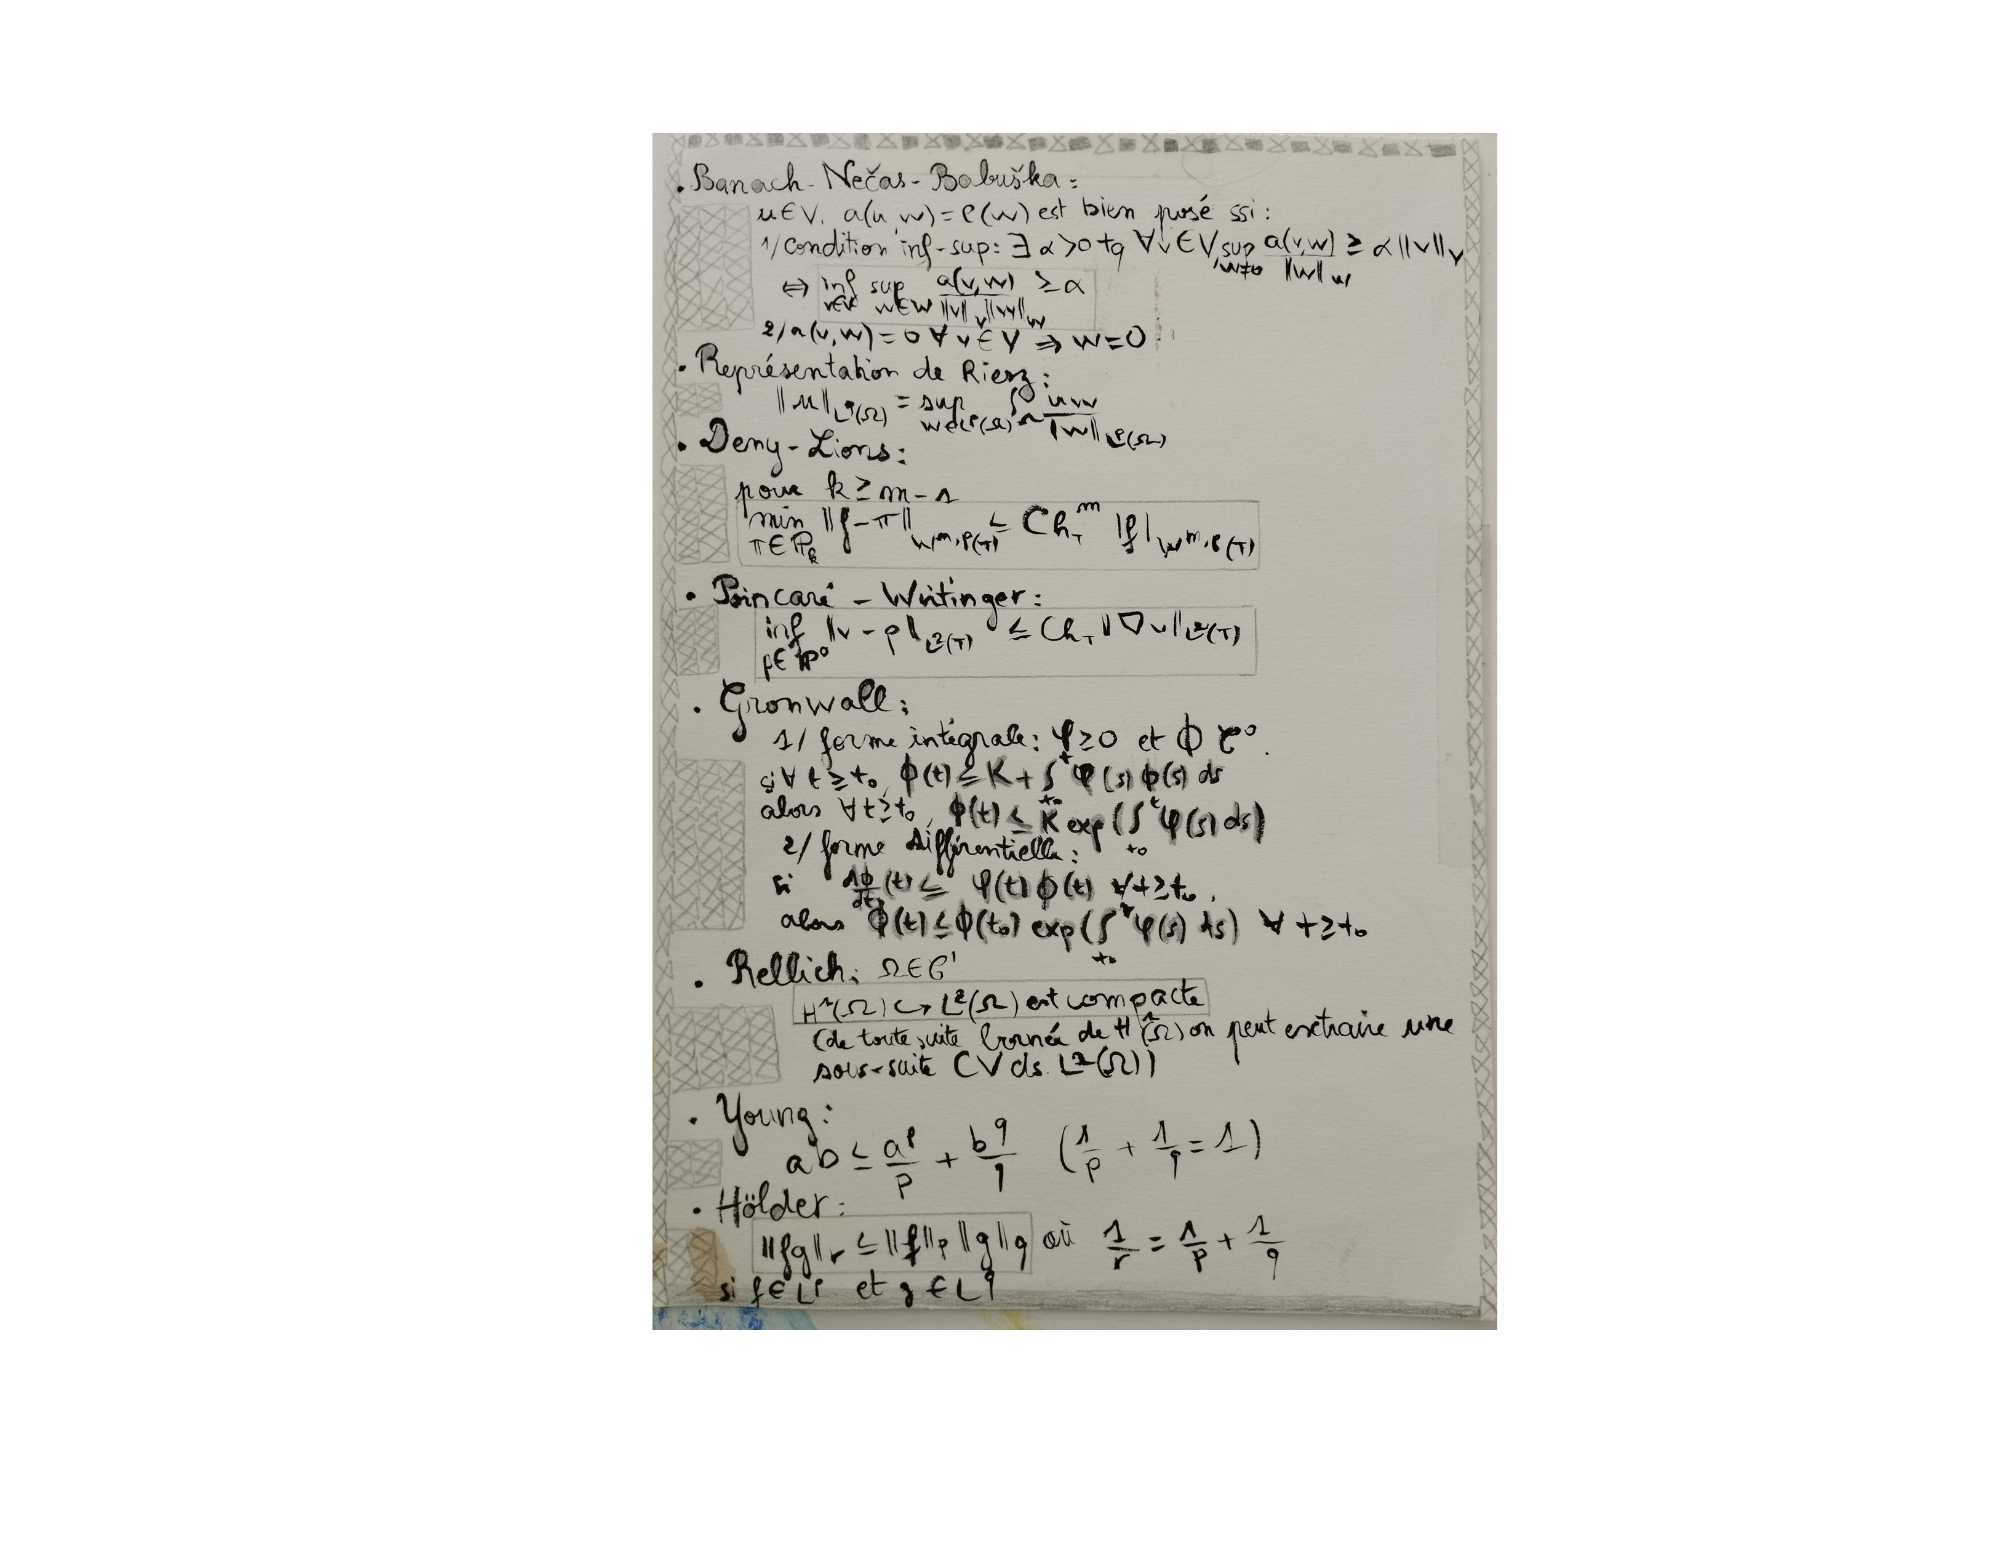 . Banach - Nečas - Babuška :
u ∈ V, a(u,w) = ℓ(w) est bien posé ssi :
1/ condition inf-sup : ∃ α > 0 tq ∀ v ∈ V, sup w≠0 a(v,w) / ||w||_W ≥ α ||v||_V
⇔ inf v∈V sup w∈W a(v,w) / ||v||_V ||w||_W ≥ α
2/ a(v,w) = 0 ∀ v ∈ V ⇒ w = 0
. Représentation de Riesz :
||u||_L^q(Ω) = sup w∈L^p(Ω) ∫_Ω uw / ||w||_L^p(Ω)
. Deny - Lions :
pour k ≥ m - 1
min π∈ℙ_k ||f - π||_W^m,p(T) ≤ C h_T^m |f|_W^m,p(T)
. Poincaré - Writinger :
inf p∈ℙ^0 ||v - p||_L²(T) ≤ C h_T ||∇v||_L²(T)
. Gronwall :
1/ forme intégrale : φ ≥ 0 et ϕ C⁰.
si ∀ t ≥ t₀, ϕ(t) ≤ K + ∫_t₀^t φ(s) ϕ(s) ds
alors ∀ t ≥ t₀, ϕ(t) ≤ K exp(∫_t₀^t φ(s) ds)
2/ forme différentielle :
si dϕ/dt (t) ≤ φ(t) ϕ(t) ∀ t ≥ t₀,
alors ϕ(t) ≤ ϕ(t₀) exp(∫_t₀^t φ(s) ds) ∀ t ≥ t₀
. Rellich : Ω ∈ C¹
H¹(Ω) ↪ L²(Ω) est compacte
(de toute suite bornée de H¹(Ω) on peut extraire une
sous-suite CV ds L²(Ω))
. Young :
ab ≤ a^p/p + b^q/q (1/p + 1/q = 1)
. Hölder :
||fg||_r ≤ ||f||_p ||g||_q où 1/r = 1/p + 1/q
si f ∈ L^p et g ∈ L^q